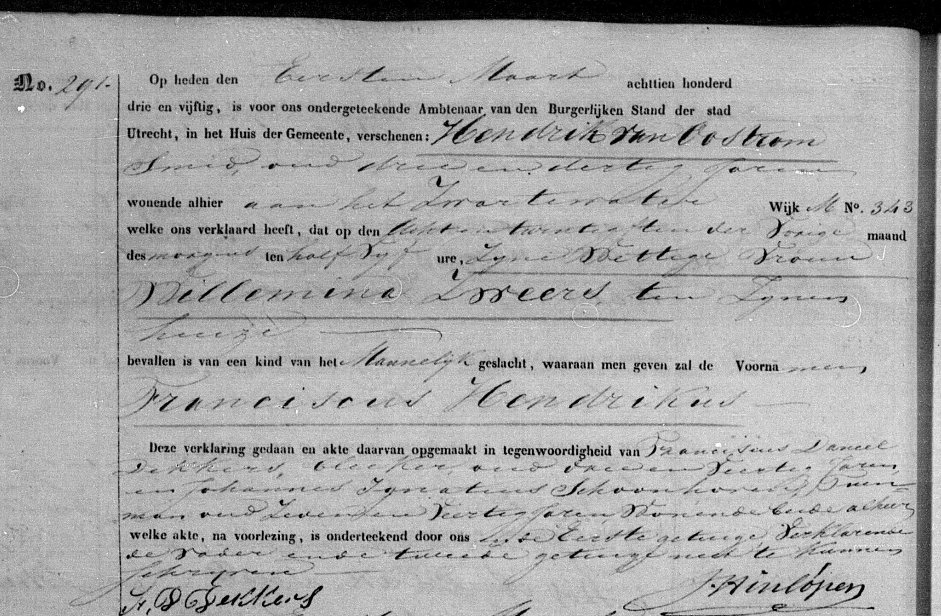 No. 291. Op heden den Eersten Maart achttien honderd
drie en vijftig, is voor ons ondergeteekende Ambtenaar van den Burgerlijken Stand der stad
Utrecht, in het Huis der Gemeente, verschenen: Hendrik van Oostrom
Smid, oud drie en dertig jaren
wonende alhier aan het Zwartewater Wijk M No. 343
welke ons verklaard heeft, dat op den Acht en twintigsten der Vorige maand
des morgens ten half Vyf ure, Zyne Wettige Vrouw
Willemina Zweers ten Zynen
huize
bevallen is van een kind van het Mannelyk geslacht, waaraan men geven zal de Voorna men
Franciscus Hendrikus
Deze verklaring gedaan en akte daarvan opgemaakt in tegenwoordigheid van Franciscus Daniel
Dekkers, bleeker, oud drie en Veertig Jaren
en Johannes Ignatius Schoonhoven
man oud Zeven en Veertig Jaren Wonende beide alhier
welke akte, na voorlezing, is onderteekend door ons en de Eerste getuige Verklarende
de Vader en de tweede getuige niet te kunnen
schryven
F. D. Dekkers J. Hinlópen